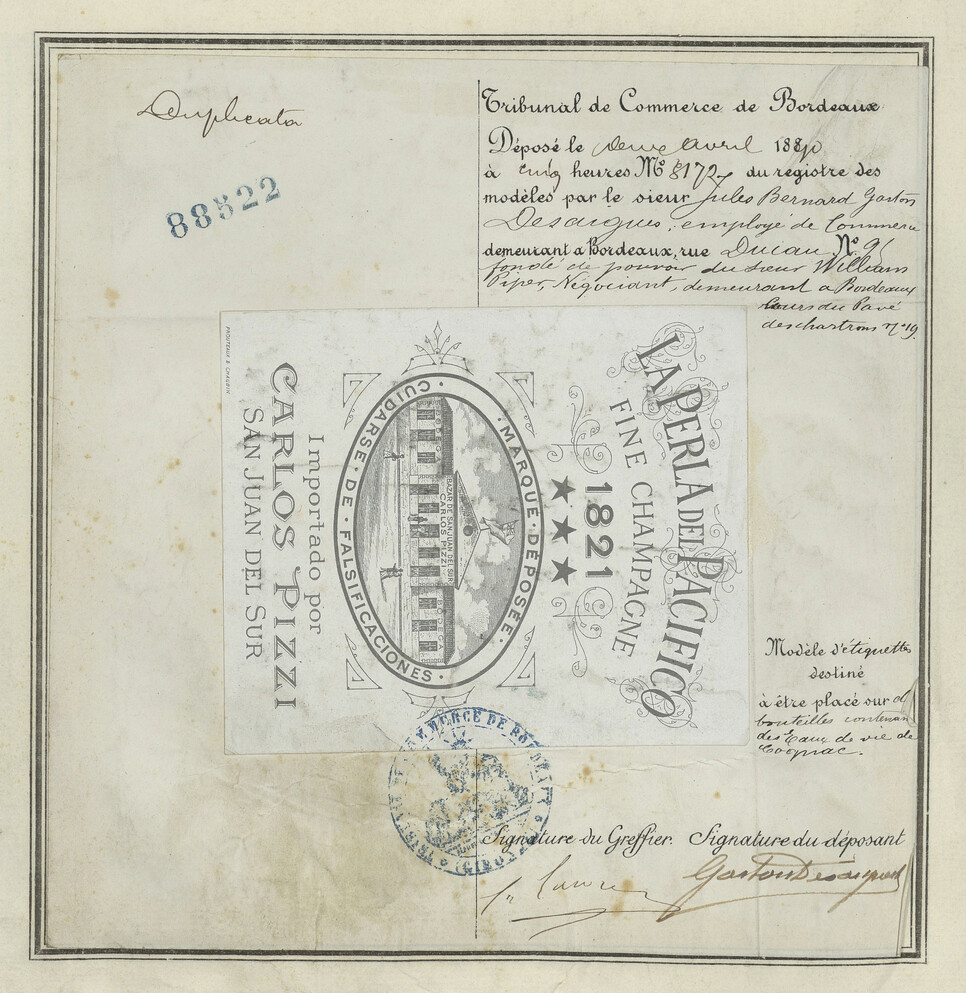 Duplicata
88522
Tribunal de Commerce de Bordeaux
Déposé le deux Avril 1880
à cinq heures No 8172 du registre des
modèles par le sieur Jules Bernard Gaston
Desaigues, employé de Commerce
demeurant a Bordeaux, rue Ducau, No 9,
fondé de pouvoir du sieur William
Piper, Négociant, demeurant a Bordeaux
Cours du Pavé
des chartrons No 19.
LA PERLA DEL PACIFICO
FINE CHAMPAGNE
1821
· MARQUE · DÉPOSÉE ·
BODEGA
BAZAR DE SAN JUAN DEL SUR
CARLOS PIZZI
BODEGA
CUIDARSE · DE · FALSIFICACIONES ·
Importado por
CARLOS PIZZI
SAN JUAN DEL SUR
PROUTEAUX & CHAUBIN
Modèle d'étiquettes
destiné
à être placé sur d
bouteilles contenan
des Eaux de vie de
Cognac.
TRIBUNAL DE COMMERCE DE BORDEAUX
(GIRONDE)
Signature du Greffier. Signature du déposant
Gaston Desaigues